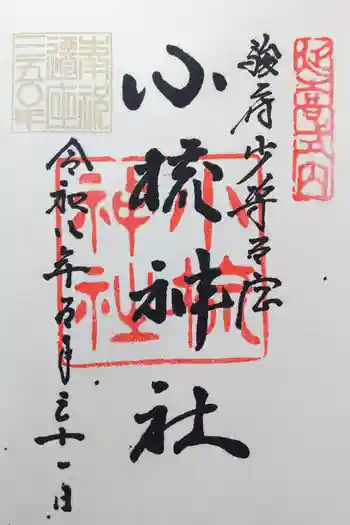 延喜式内
駿府少将井宮
小梳神社
小梳
神社
奉祝
遷座
三五〇年
令和八年五月三十一日